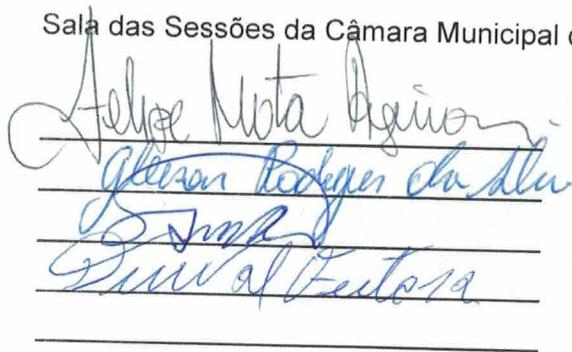 Sala das Sessões da Câmara Municipal d
Felipe Mota
Rodrigues da Silva
Durval Feitosa